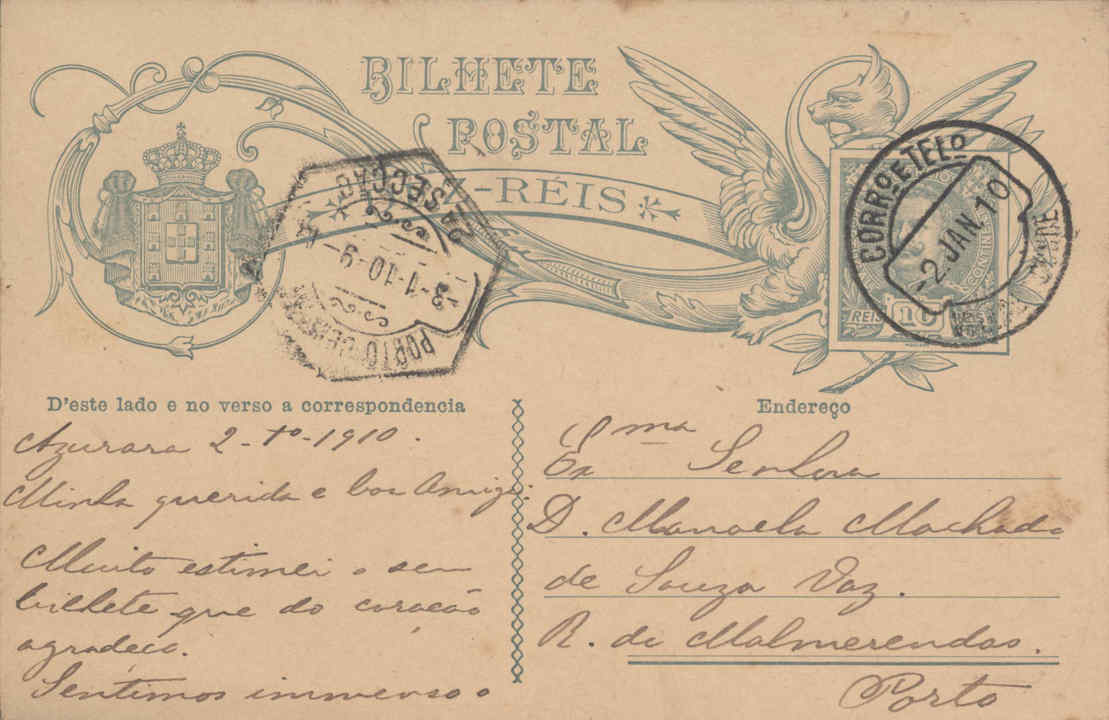 BILHETE
POSTAL
-RÉIS
2ª SECÇÃO
-3-1-10-9-
PORTO
CORRº E TELº
-2 JAN. 10
REIS 10
D'este lado e no verso a correspondencia
Azurara 2-1º-1910.
Minha querida e boa Amiga:
Muito estimei o seu
bilhete que do coração
agradeço.
Sentimos immenso o
Endereço
Exma Senhora
D. Manoela Machado
de Souza Vaz.
R. de Malmerendas.
Porto